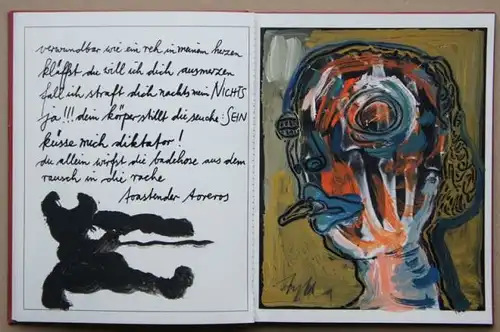 verwundbar wie ein reh in meinem herzen
kläffst du will ich dich ausmerzen
fall ich straft dich nachts mein NICHTS
ja!!! dein körper stillt die seuche: SEIN
küsse mich diktator!
du allein wirfst die badehose aus dem
rausch in die rache